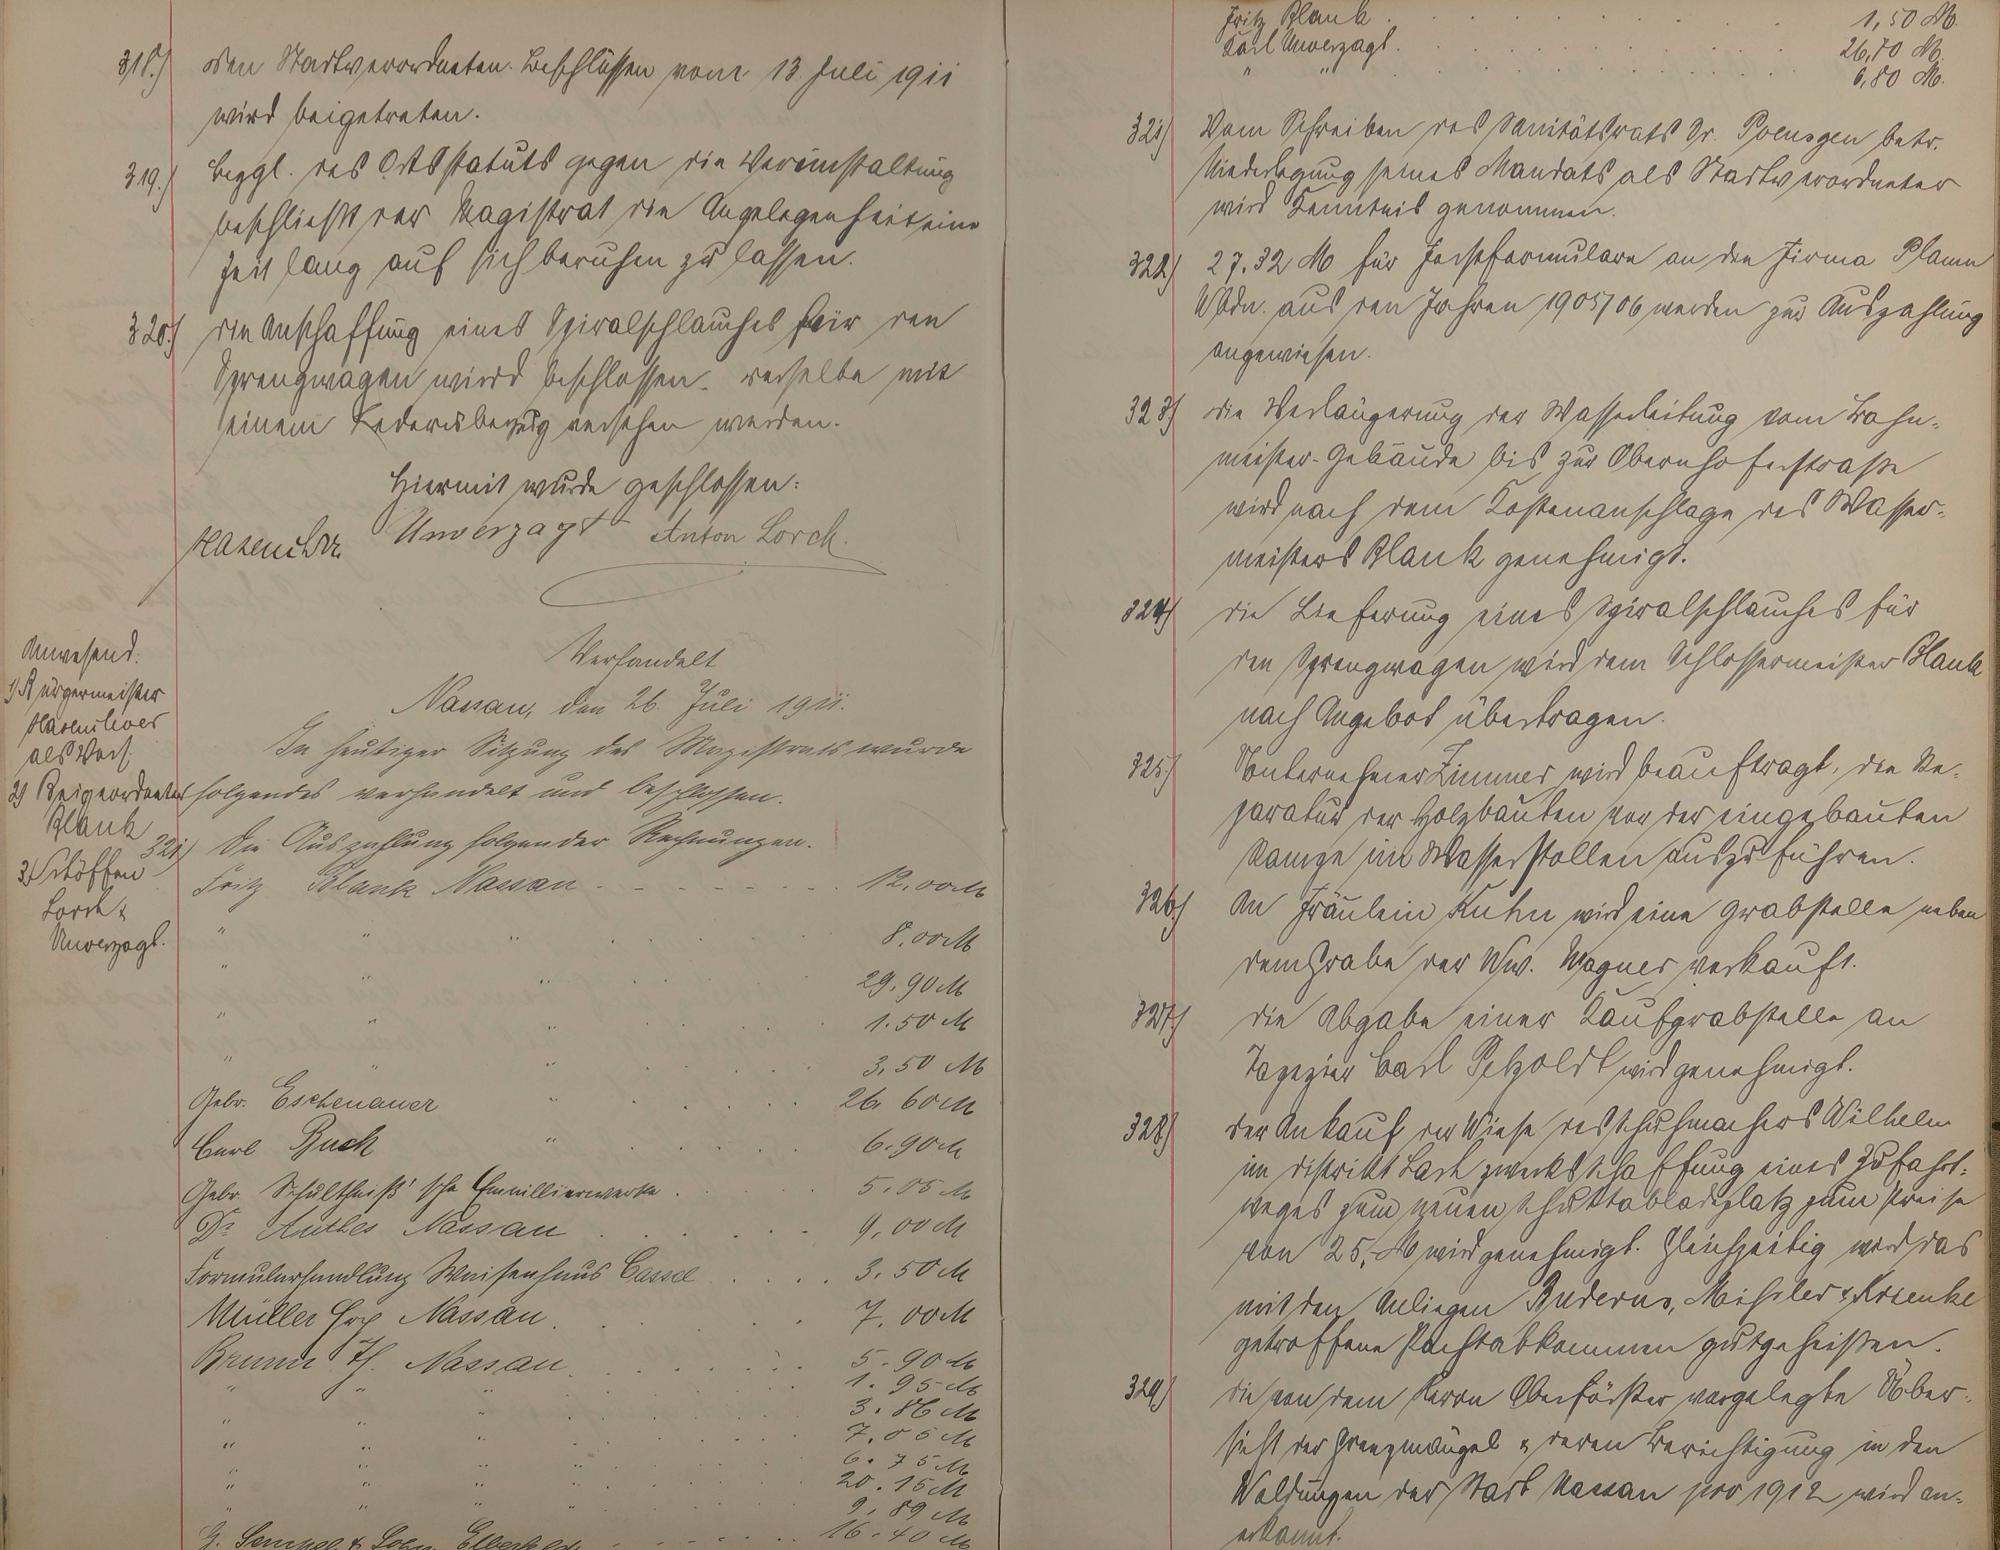 318.) Den Stadtverordneten-Beschlüssen vom 13. Juli 1911
wird beigetreten.
319.) Bezgl. des Ortsstatuts gegen die Verunstaltung
beschließt der Magistrat die Angelegenheit eine
Zeit lang auf sich beruhen zu lassen.
320.) Die Anschaffung eines Spiralschlauches für den
Sprengwagen wird beschlossen. derselbe mit
einem Lederüberzug versehen werden.
Hiermit wurde geschlossen:
Hasenclever Unverzagt Anton Lorch.
Verhandelt
Nassau, den 26. Juli 1911.
Anwesend.
1) Bürgermeister
Hasenclever
als Vors.
2) Beigeordneter
Blank
3) Schöffen
Lorch &
Unverzagt.
In heutiger Sitzung des Magistrats wurde
folgendes verhandelt und beschlossen.
321) Die Auszahlung folgender Rechnungen.
Fritz Blank Nassau . . . 12.00 M
" " " . . . 8.00 M
" " " . . . 29.90 M
" " " . . . 1.50 M
" " " . . . 3.50 M
Gebr. Eschenauer " . . . 26.60 M
Carl Buck " . . . 6.90 M
Gebr. Schultheiß'sche Emaillierwerke . . . 5.05 M
Dr. Anthes Nassau . . . 9,00 M
Formularhandlung Waisenhaus Cassel . . . 3.50 M
Müller Nassau . . . 7.00 M
Brunn Th. Nassau . . . 5.90 M
" " " . . . 1.95 M
" " " . . . 3.86 M
" " " . . . 7.05 M
" " " . . . 6.75 M
" " " . . . 20.15 M
" " " . . . 9.89 M
& Sohn Elberfeld . . . 16.40 M
Fritz Blank . . . 1,50 M.
Karl Unverzagt . . . 26,70 M.
" " . . . 6,80 M.
321) Vom Schreiben des Sanitätsrats Dr. Poensgen betr.
Niederlegung seines Mandats als Stadtverordneter
wird Kenntnis genommen.
322) 27.32 M für Forstformulare an die Firma Plaum
Wbdn. aus den Jahren 1905/06 werden zur Auszahlung
angewiesen.
323) Die Verlängerung der Wasserleitung vom Bahn-
meister-Gebäude bis zur Obernhoferstraße
wird nach dem Kostenanschlage des Wasser-
meisters Blank genehmigt.
324) Die Lieferung eines Spiralschlauches für
den Sprengwagen wird dem Schlossermeister Blank
nach Angebot übertragen.
325) Unternehmer Zimmer wird beauftragt, die Re-
paratur der Holzbauten vor der eingebauten
Rampe im Wasserstollen auszuführen.
326.) An Fräulein Kuhn wird eine Grabstelle neben
dem Grabe der Ww. Wagner verkauft.
327.) Die Abgabe einer Kaufgrabstelle an
Tapezier Carl Petzoldt wird genehmigt.
328) Der Ankauf der Wiese des Schuhmachers Wilhelm
im Distrikt Lach zwecks Schaffung eines Zufahrt-
weges zum neuen Schuttabladeplatz zum Preise
von 25,- M wird genehmigt. Gleichzeitig wird das
mit den Anliegern Buderus, Mißler & Krienke
getroffene Pachtabkommen gutgeheißen.
329) Die von dem Herrn Oberförster vorgelegte Über-
sicht der Grenzmängel & deren Berichtigung in den
Waldungen der Stadt Nassau pro 1912 wird an-
erkannt.